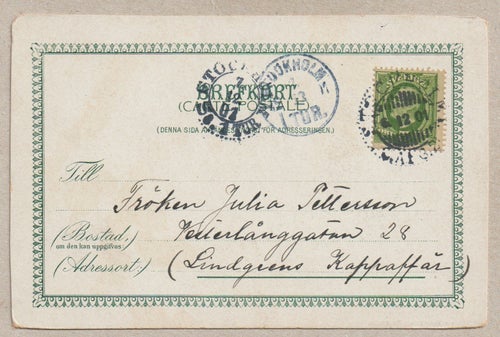 BREFKORT.
(CARTE POSTALE)
(DENNA SIDA ANVÄNDES ENDAST FÖR ADRESSERINGEN.)
STOCKHOLM
1 TUR.
STOCKHOLM
7
12
01
1 TUR
SVERIGE
12 01
Till
Fröken Julia Pettersson
(Bostad,
om den kan uppgifvas)
Vesterlånggatan 28
(Adressort:)
(Lindgrens Kappaffär)